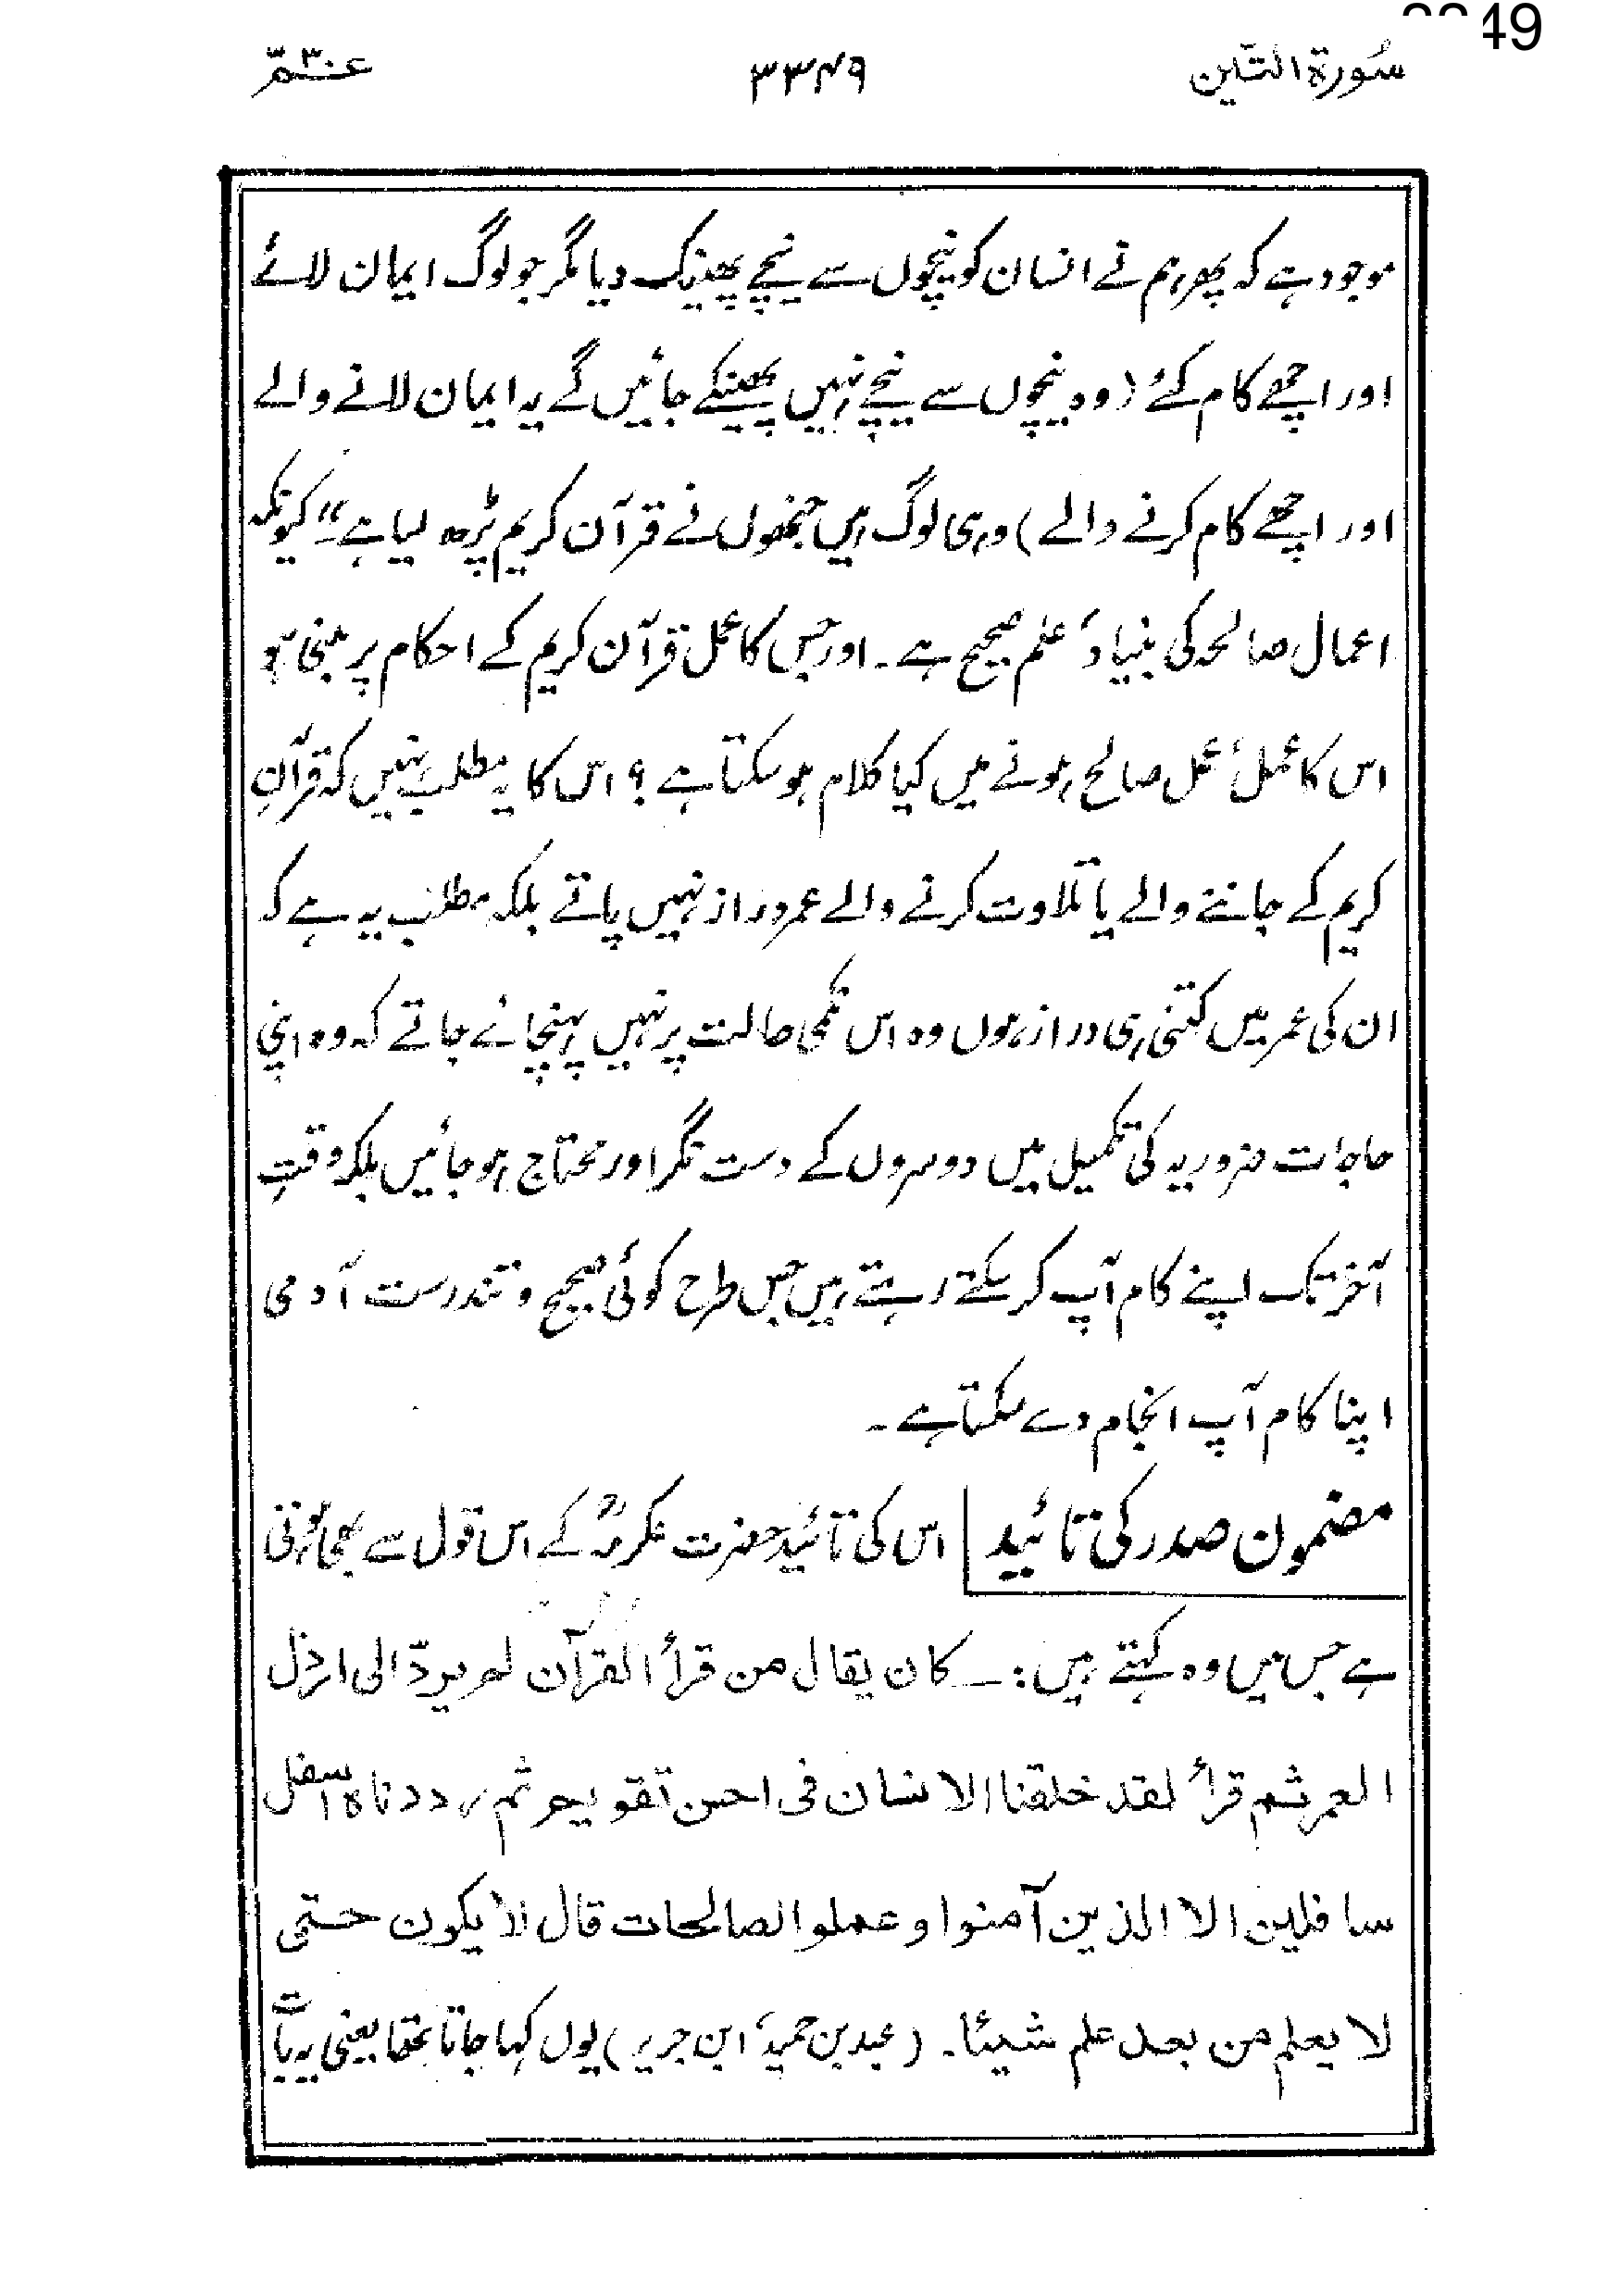 3349
سُورۃ التّین ۳۳۴۹ عـمّ ۳۰
موجود ہے کہ پھر ہم نے انسان کو نیچوں سے نیچے پھینک دیا مگر جو لوگ ایمان لائے
اور اچھے کام کئے (وہ نیچوں سے نیچے نہیں پھینکے جائیں گے یہ ایمان لانے والے
اور اچھے کام کرنے والے) وہی لوگ ہیں جنھوں نے قرآن کریم پڑھ لیا ہے" کیونکہ
اعمال صالحہ کی بنیاد، علم صحیح ہے۔ اور جس کا عمل قرآن کریم کے احکام پر مبنی ہو
اس کا عمل، عمل صالح ہونے میں کیا کلام ہو سکتا ہے؟ اس کا یہ مطلب نہیں کہ قرآنِ
کریم کے جاننے والے یا تلاوت کرنے والے عمر دراز نہیں پاتے بلکہ مطلب یہ ہے کہ
ان کی عمر میں کتنی ہی دراز ہوں وہ اس نکمی حالت پر نہیں پہنچائے جاتے کہ وہ اپنی
حاجات ضروریہ کی تکمیل میں دوسروں کے دست نگر اور محتاج ہو جائیں بلکہ وقتِ
آخر تک اپنے کام آپ کر سکتے رہتے ہیں جس طرح کوئی صحیح و تندرست آدمی
اپنا کام آپ انجام دے سکتا ہے۔
مضمون صدر کی تائید اس کی تائید حضرت عکرمہؒ کے اس قول سے بھی ہوتی
ہے جس میں وہ کہتے ہیں:۔ کان یقال من قرأ القرآن لم یردّ الی ارذل
العمر ثم قرأ لقد خلقنا الانسان فی احسن تقویم ثم رددناہ اسفل
سافلین الا الذین آمنوا وعملوا الصالحات قال لا یکون حتی
لا یعلم من بعد علم شیئا۔ (عبد بن حمید، ابن جریر) یوں کہا جاتا تھا یعنی یہ بات